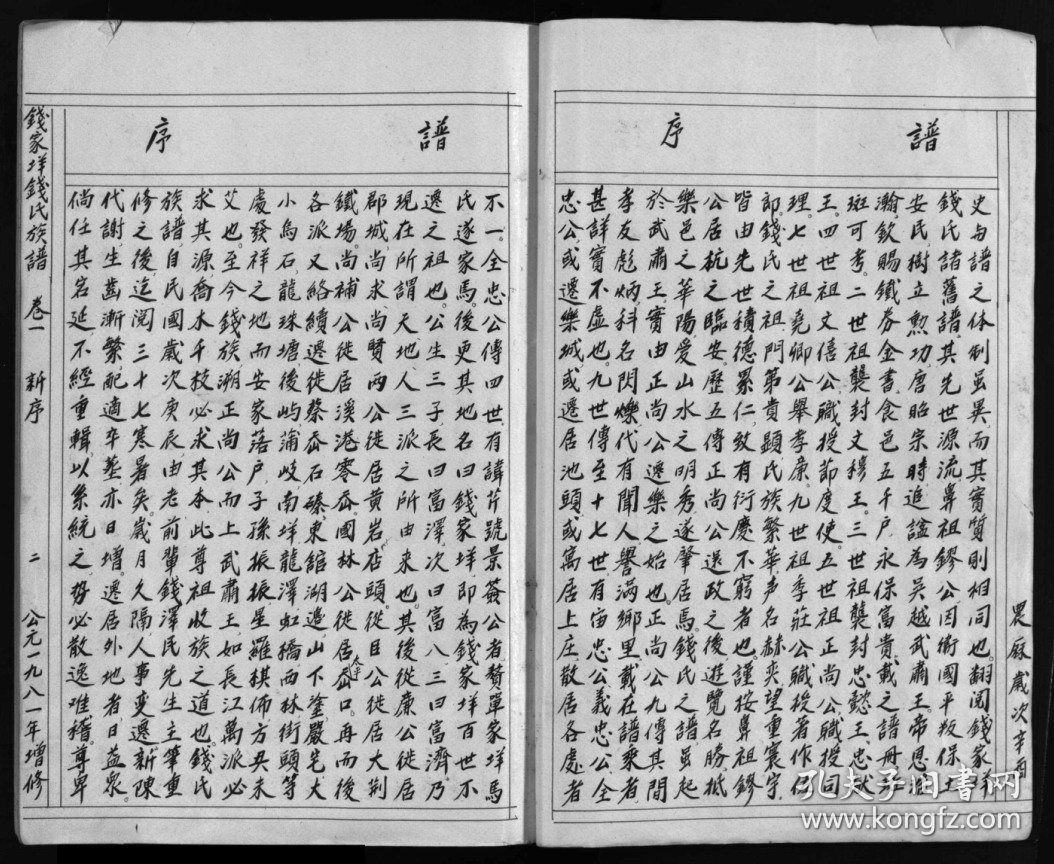 譜序
史与譜之体制虽異而其實質則相同也。翻阅錢家垟
錢氏諸舊譜其先世源流鼻祖鏐公因衛國平叛保土
安民樹立勲功唐昭宗時追謚為吴越武肅王帝恩浩
瀚欽賜鐵券金書食邑五千户永保富貴載之譜冊斑
斑可考。二世祖襲封文穆王。三世祖襲封忠懿王忠献
王。四世祖文僖公職授節度使。五世祖正尚公職授同
理。七世祖堯卿公舉孝廉。九世祖季莊公職授著作佐
郎。錢氏之祖門第貴顯氏族繁華声名赫奕望重寰宇
皆由先世積德累仁致有衍慶不窮者也。謹按鼻祖鏐
公居杭之臨安歷五傳正尚公退政之後遊覽名勝抵
樂邑之華陽愛山水之明秀遂肇居焉錢氏之譜虽起
於武肅王實由正尚公遷樂之始也。正尚公九傳其間
孝友彪炳科名閃爍代有聞人譽滿鄉里載在譜乘者
甚詳實不虚也。九世傳至十七世有宙忠公義忠公全
忠公或遷樂城或遷居池頭或寓居上庄散居各處者
農厤歲次辛酉
譜序
不一。全忠公傳四世有諱芹號景簽公者贅單家垟馬
氏遂家焉後更其地名曰錢家垟即為錢家垟百世不
遷之祖也。公生三子長曰富澤次曰富八三曰富濟乃
現在所謂天地人三派之所由来也。其後從廉公徙居
郡城尚求尚賢两公徙居黄岩店頭從目公徙居大荆
鐵場尚補公徙居溪港零岙國林公徙居大岙岙口再而後
各派又絡續遷徙蔡岙石磉東館湖邉山下塗嚴宅大
小烏石龍珠塘後屿蒲岐南垟龍澤虹橋西林街頭等
處發祥之地而安家落户子孫振振星羅棋佈方興未
艾也。至今錢族溯正尚公而上武肅王如長江萬派必
求其源喬木千枝必求其本此尊祖收族之道也。錢氏
族譜自民國歲次庚辰由老前輩錢澤民先生主筆重
修之後迄阅三十七寒暑矣歲月久隔人事变遷新陳
代謝生齒漸繁配適卒塟亦日增遷居外地者日益衆
倘任其宕延不經重輯以系統之势必散逸难稽尊卑
錢家垟錢氏族譜 卷一 新序 二 公元一九八一年增修
孔夫子旧书网
www.kongfz.com